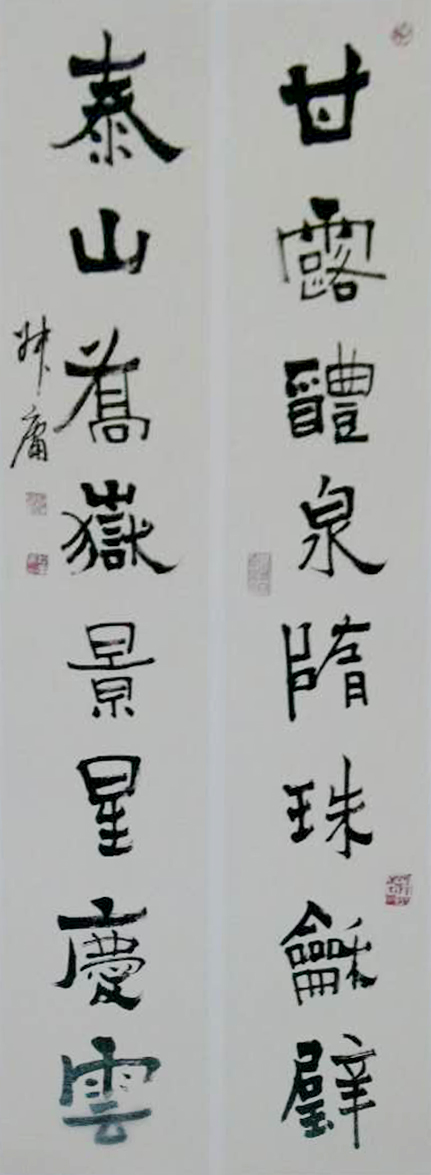 甘露醴泉隋珠龢璧
泰山喬嶽景星慶雲
庸